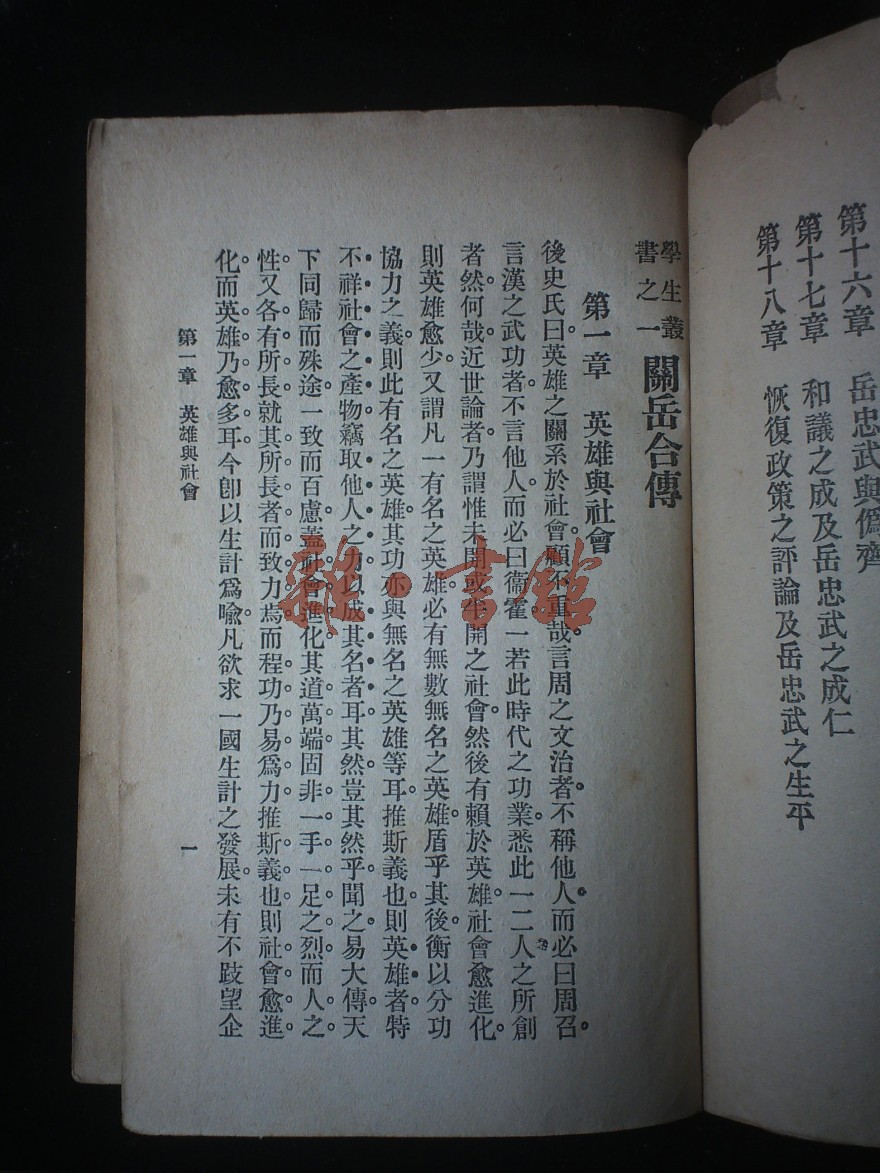 第十六章　岳忠武與僞齊
第十七章　和議之成及岳忠武之成仁
第十八章　恢復政策之評論及岳忠武之生平
學生叢書之一 關岳合傳
第一章　英雄與社會
後史氏曰。英雄之關系於社會。顧不重哉。言周之文治者。不稱他人。而必曰周召。
言漢之武功者。不言他人。而必曰衞霍。一若此時代之功業。悉此一二人之所創
者然。何哉。近世論者。乃謂惟未開或半開之社會。然後有賴於英雄。社會愈進化。
則英雄愈少。又謂凡一有名之英雄。必有無數無名之英雄。盾乎其後。衡以分功
協力之義。則此有名之英雄。其功亦與無名之英雄等耳。推斯義也。則英雄者。特
不祥社會之產物。竊取他人之功以成其名者耳。其然豈其然乎。聞之易大傳。天
下同歸而殊途。一致而百慮。蓋社會進化。其道萬端。固非一手一足之烈。而人之
性。又各有所長。就其所長者而致力焉。而程功乃易爲力。推斯義也。則社會愈進
化。而英雄乃愈多耳。今卽以生計爲喩。凡欲求一國生計之發展。未有不跂望企
第一章　英雄與社會
一
雜·書館